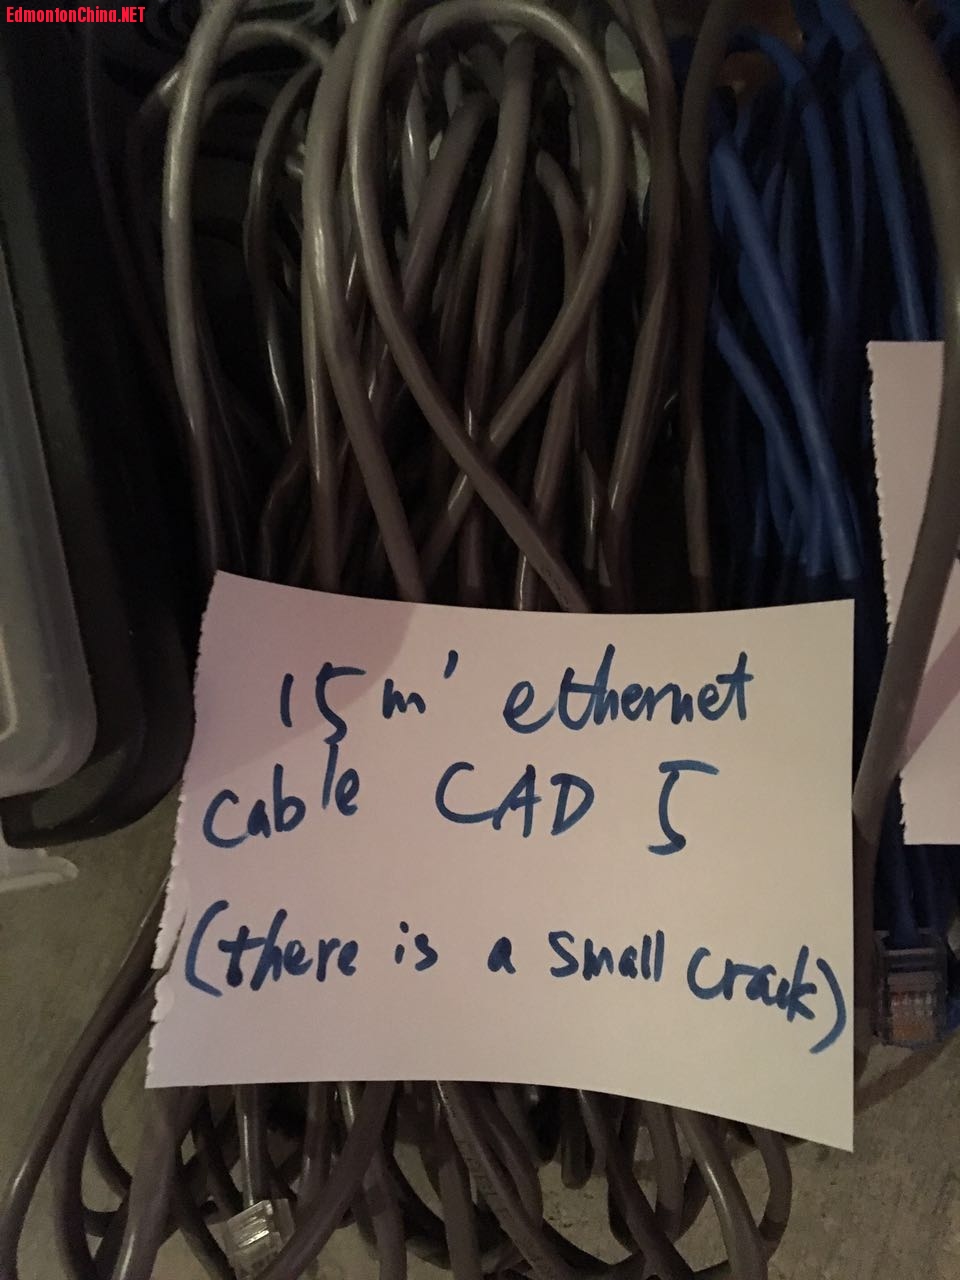 EdmontonChina.NET
15m' ethernet
cable CAD 5
(there is a small crack)